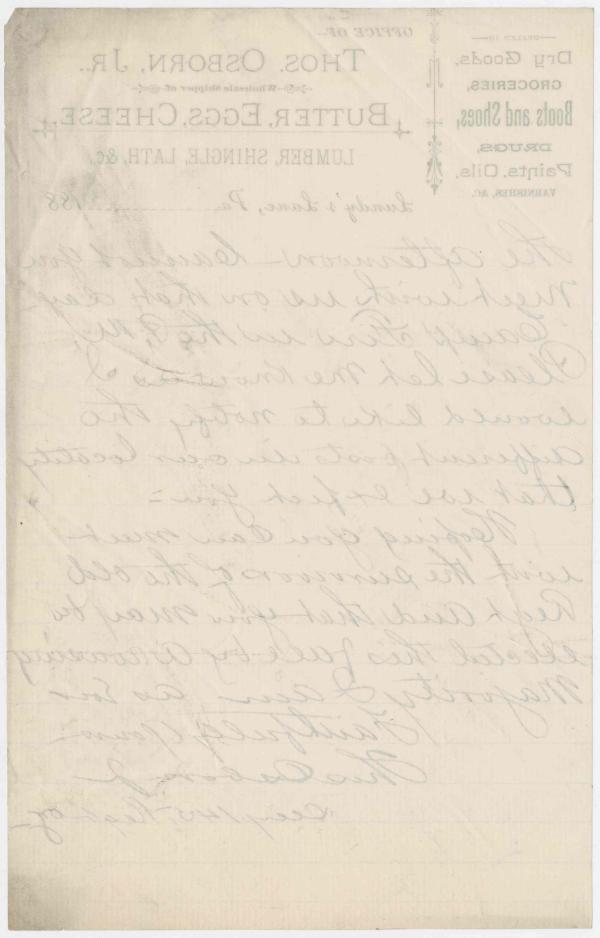 OFFICE OF
THOS. OSBORN, JR.
Wholesale Shipper of
BUTTER, EGGS, CHEESE,
LUMBER, SHINGLE, LATH, &C.
DEALER IN
Dry Goods,
GROCERIES,
Boots and Shoes,
DRUGS,
Paints, Oils,
VARNISHES, &C.
Lundy's Lane, Pa. 188
The afternoon – Cannot you
Meet with us on that day
Camp Fire in the P.M.
Please let me know as I
would like to notify the
different posts in our locality
that we expect you –
Hoping you can meet
with the survivors of the old
Regt and that you may be
elected this fall by a rousing
Majority I am as Ever
Faithfully Yours –
Thos Osborn Jr
145 Regt